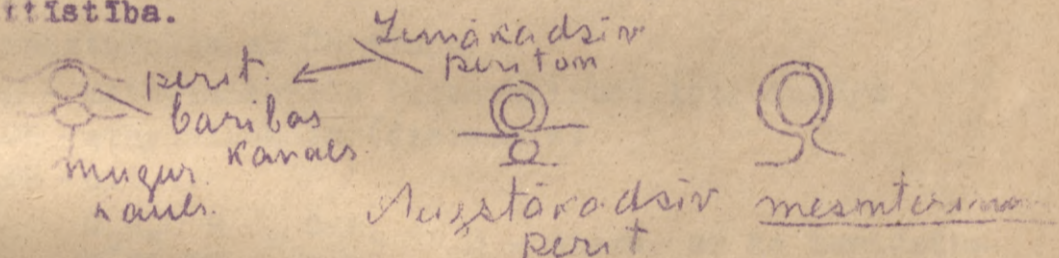 ttīstība.
Zemākadsīv
periton
perit.
barības
kanals
mugur
kauls.
Augstākadsīv
perit